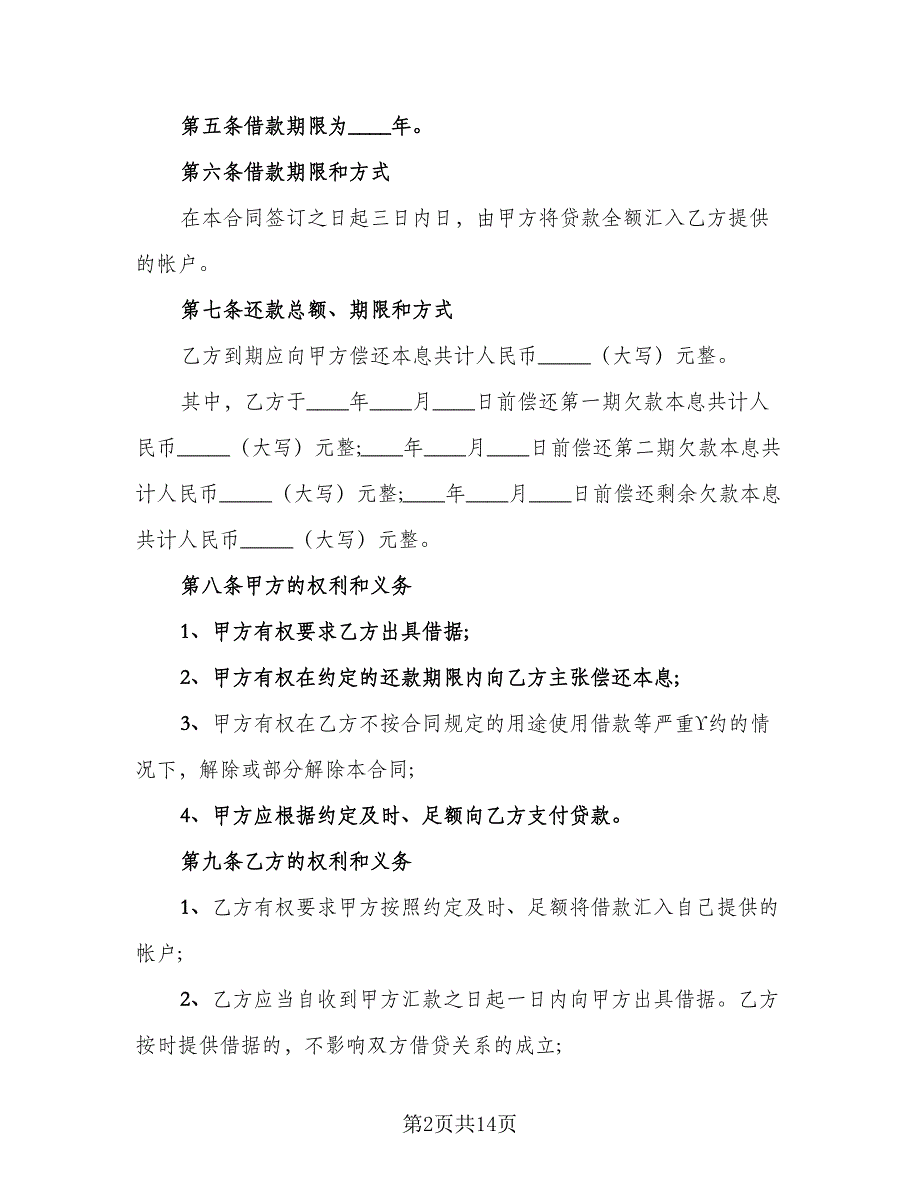 第五条借款期限为____年。
第六条借款期限和方式
在本合同签订之日起三日内日，由甲方将贷款全额汇入乙方提供
的帐户。
第七条还款总额、期限和方式
乙方到期应向甲方偿还本息共计人民币_____（大写）元整。
其中，乙方于____年____月____日前偿还第一期欠款本息共计人
民币_____（大写）元整;____年____月____日前偿还第二期欠款本息共
计人民币_____（大写）元整;____年____月____日前偿还剩余欠款本息
共计人民币_____（大写）元整。
第八条甲方的权利和义务
1、甲方有权要求乙方出具借据;
2、甲方有权在约定的还款期限内向乙方主张偿还本息;
3、甲方有权在乙方不按合同规定的用途使用借款等严重ϒ约的情
况下，解除或部分解除本合同;
4、甲方应根据约定及时、足额向乙方支付贷款。
第九条乙方的权利和义务
1、乙方有权要求甲方按照约定及时、足额将借款汇入自己提供的
帐户;
2、乙方应当自收到甲方汇款之日起一日内向甲方出具借据。乙方
按时提供借据的，不影响双方借贷关系的成立;
第2页共14页